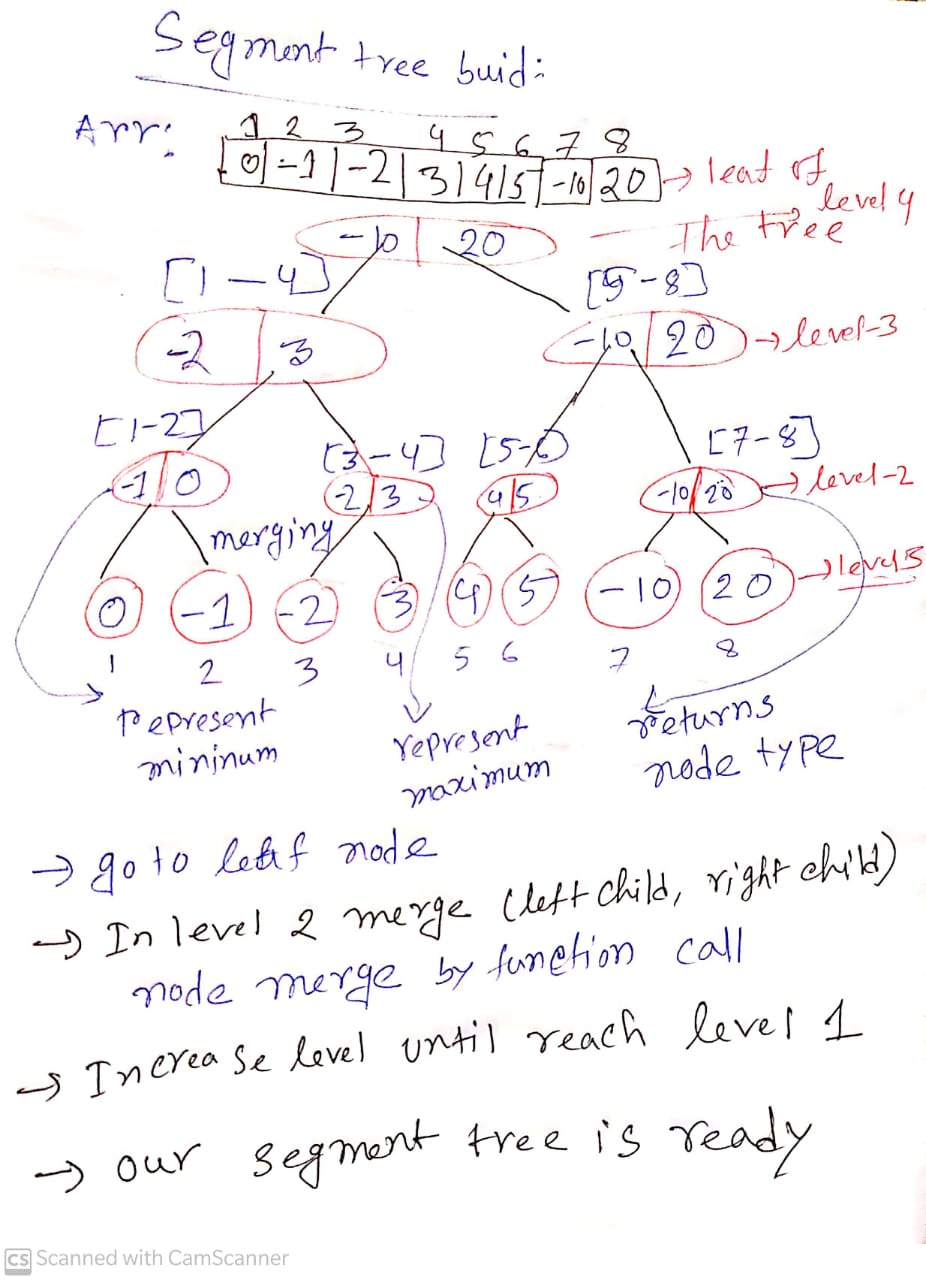 Segment tree buid:
Arr: 1 2 3 4 5 6 7 8
0 -1 -2 3 4 5 -10 20 → leaf of
The tree
-10 20 level 4
[1-4] [5-8]
-2 3 -10 20 → level-3
[1-2] [3-4] [5-6] [7-8]
-1 0 -2 3 4 5 -10 20 → level-2
merging
0 -1 -2 3 4 5 -10 20 → level
1 2 3 4 5 6 7 8
represent
mininum
represent
maximum
returns
node type
→ go to leaf node
→ In level 2 merge (left child, right child)
node merge by function call
→ Increase level until reach level 1
→ our segment tree is ready
CS Scanned with CamScanner